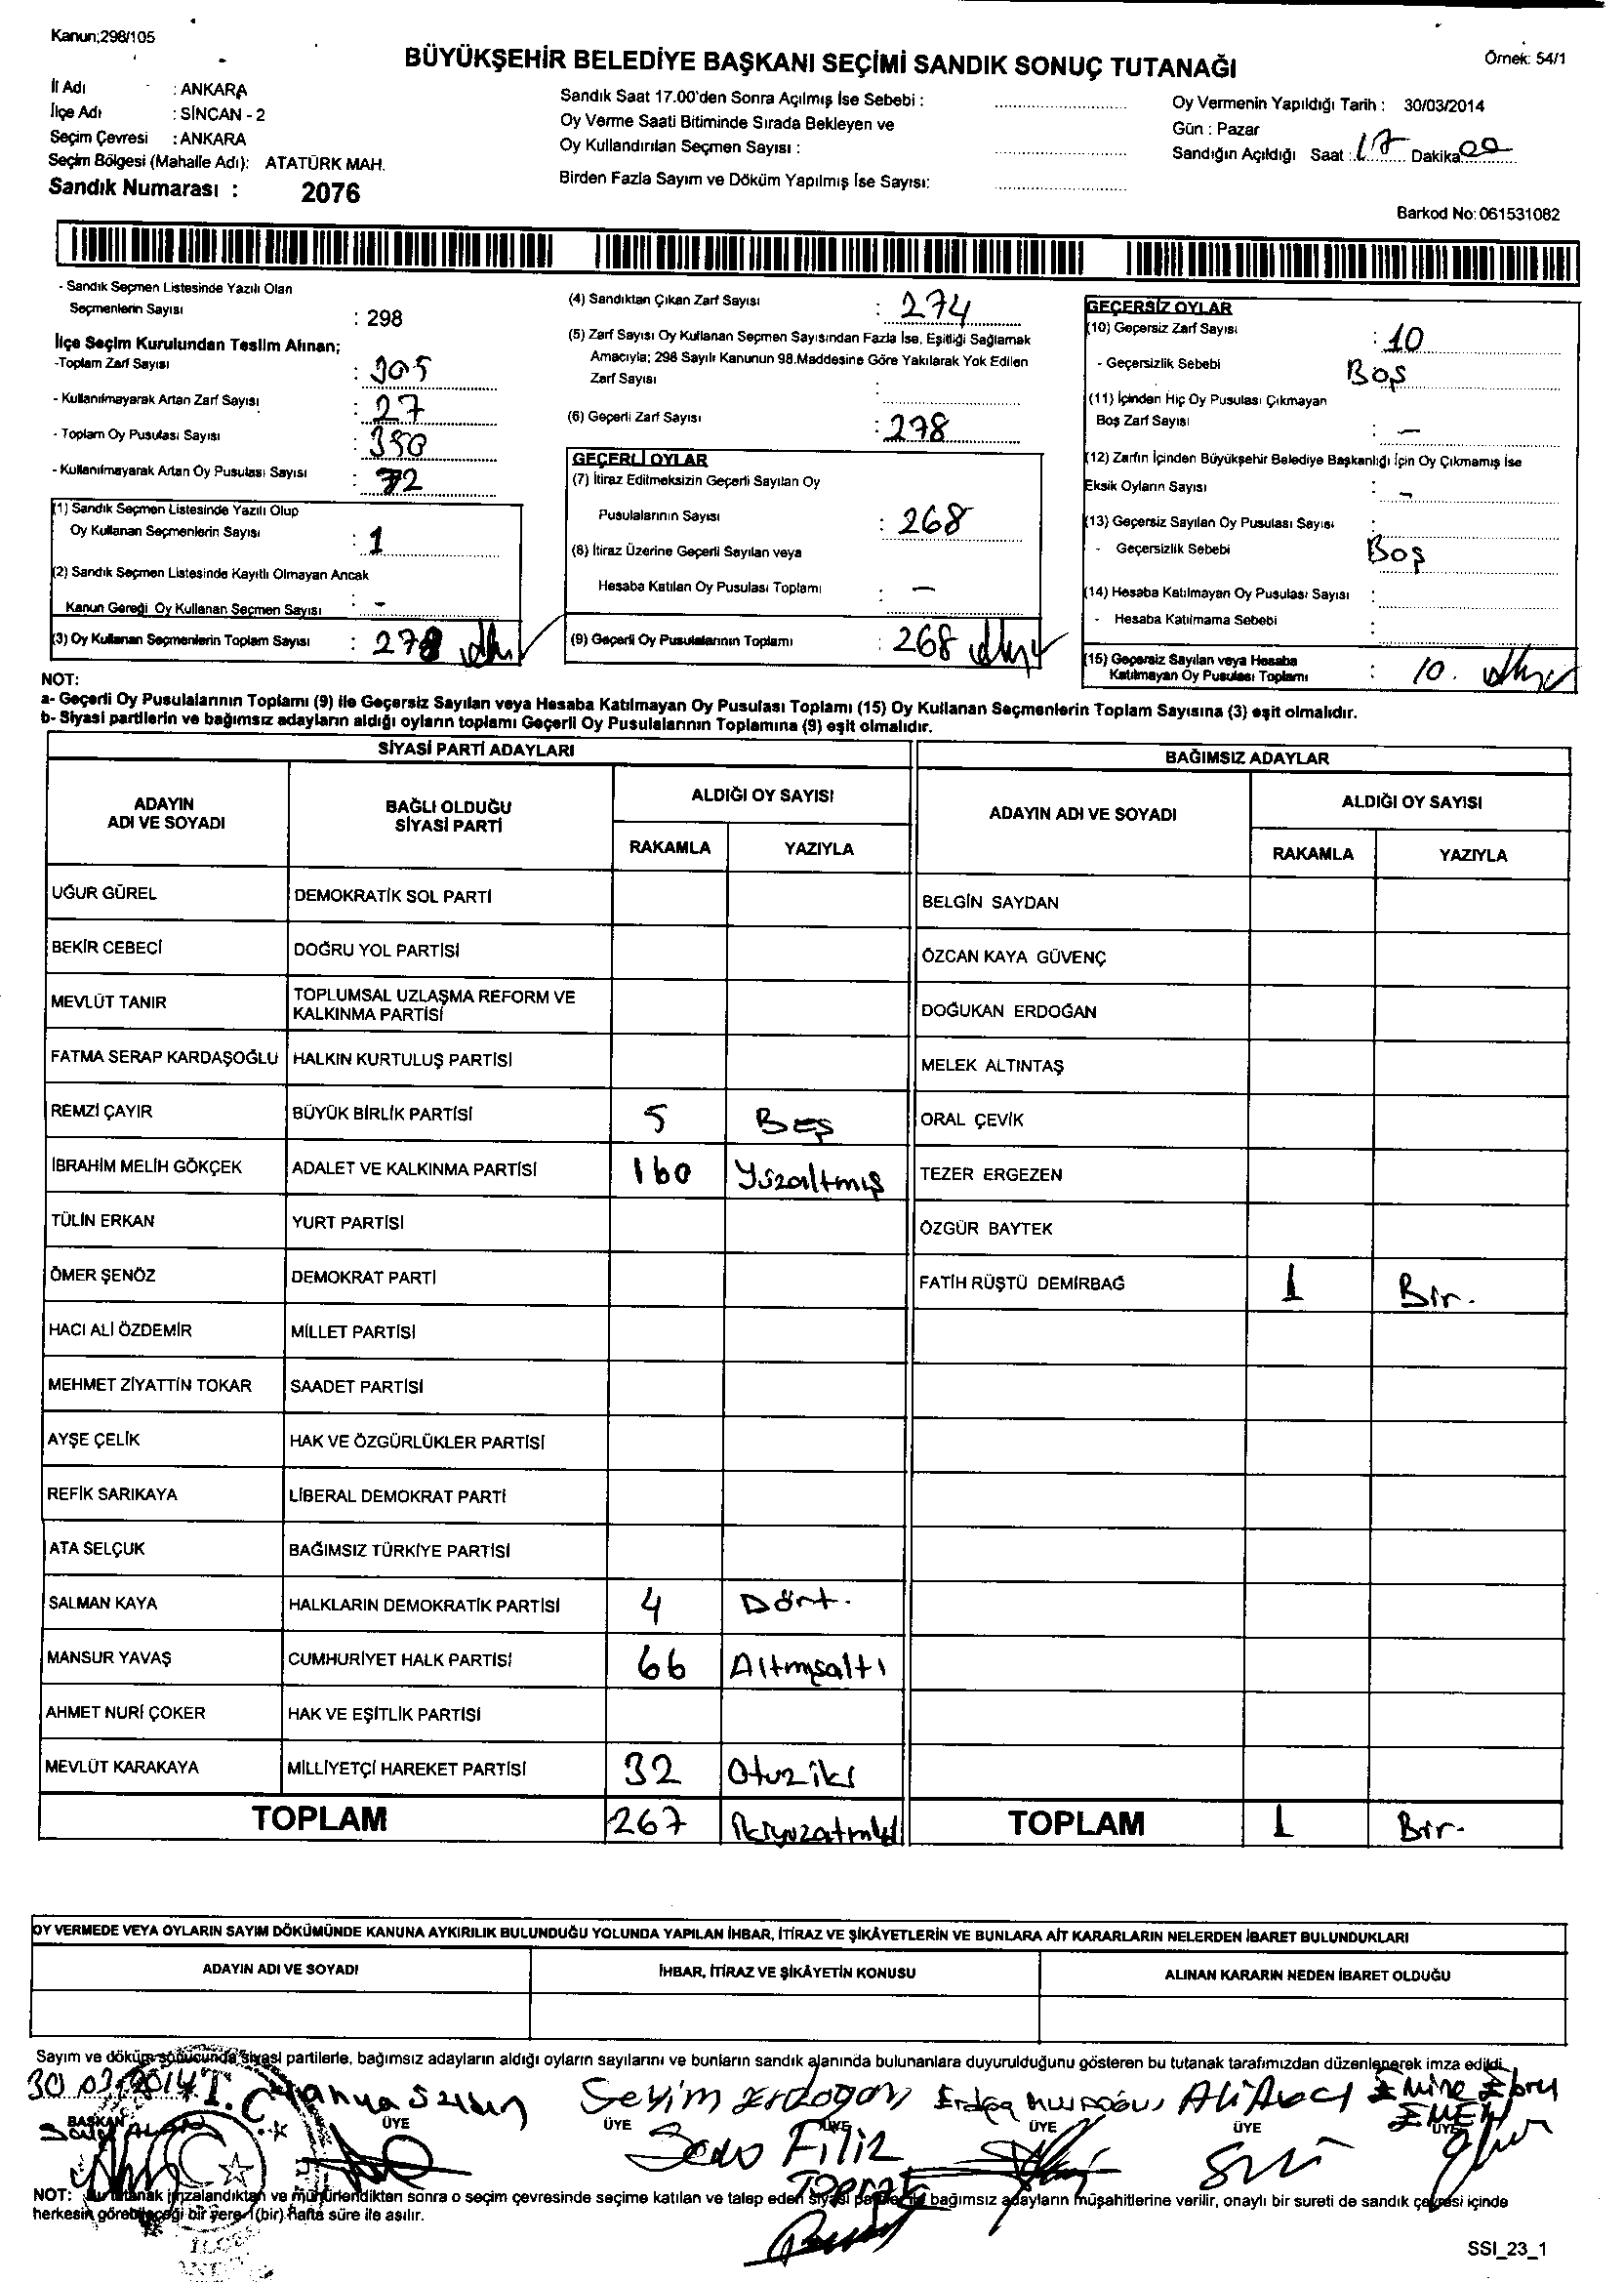 Kanun;298/105
BÜYÜKŞEHİR BELEDİYE BAŞKANI SEÇİMİ SANDIK SONUÇ TUTANAĞI
Örnek: 54/1
İl Adı : ANKARA
İlçe Adı : SİNCAN - 2
Seçim Çevresi : ANKARA
Seçim Bölgesi (Mahalle Adı): ATATÜRK MAH.
Sandık Numarası : 2076
Sandık Saat 17.00'den Sonra Açılmış İse Sebebi :
Oy Verme Saati Bitiminde Sırada Bekleyen ve
Oy Kullandırılan Seçmen Sayısı :
Birden Fazla Sayım ve Döküm Yapılmış İse Sayısı:
Oy Vermenin Yapıldığı Tarih : 30/03/2014
Gün : Pazar
Sandığın Açıldığı Saat : 17 Dakika 00
Barkod No: 061531082
- Sandık Seçmen Listesinde Yazılı Olan
Seçmenlerin Sayısı : 298
İlçe Seçim Kurulundan Teslim Alınan;
-Toplam Zarf Sayısı : 305
- Kullanılmayarak Artan Zarf Sayısı : 27
- Toplam Oy Pusulası Sayısı : 350
- Kullanılmayarak Artan Oy Pusulası Sayısı : 72
(1) Sandık Seçmen Listesinde Yazılı Olup
Oy Kullanan Seçmenlerin Sayısı : 1
(2) Sandık Seçmen Listesinde Kayıtlı Olmayan Ancak
Kanun Gereği Oy Kullanan Seçmen Sayısı : -
(3) Oy Kullanan Seçmenlerin Toplam Sayısı : 278
(4) Sandıktan Çıkan Zarf Sayısı : 274
(5) Zarf Sayısı Oy Kullanan Seçmen Sayısından Fazla İse, Eşitliği Sağlamak
Amacıyla; 298 Sayılı Kanunun 98.Maddesine Göre Yakılarak Yok Edilen
Zarf Sayısı :
(6) Geçerli Zarf Sayısı : 278
GEÇERLİ OYLAR
(7) İtiraz Edilmeksizin Geçerli Sayılan Oy
Pusulalarının Sayısı : 268
(8) İtiraz Üzerine Geçerli Sayılan veya
Hesaba Katılan Oy Pusulası Toplamı : —
(9) Geçerli Oy Pusulalarının Toplamı : 268
GEÇERSİZ OYLAR
(10) Geçersiz Zarf Sayısı : 10
- Geçersizlik Sebebi Boş
(11) İçinden Hiç Oy Pusulası Çıkmayan
Boş Zarf Sayısı : —
(12) Zarfın İçinden Büyükşehir Belediye Başkanlığı İçin Oy Çıkmamış İse
Eksik Oyların Sayısı : -
(13) Geçersiz Sayılan Oy Pusulası Sayısı :
- Geçersizlik Sebebi Boş
(14) Hesaba Katılmayan Oy Pusulası Sayısı :
- Hesaba Katılmama Sebebi :
(15) Geçersiz Sayılan veya Hesaba
Katılmayan Oy Pusulası Toplamı : 10.
NOT:
a- Geçerli Oy Pusulalarının Toplamı (9) ile Geçersiz Sayılan veya Hesaba Katılmayan Oy Pusulası Toplamı (15) Oy Kullanan Seçmenlerin Toplam Sayısına (3) eşit olmalıdır.
b- Siyasi partilerin ve bağımsız adayların aldığı oyların toplamı Geçerli Oy Pusulalarının Toplamına (9) eşit olmalıdır.
SİYASİ PARTİ ADAYLARI
BAĞIMSIZ ADAYLAR
ADAYIN ADI VE SOYADI
BAĞLI OLDUĞU SİYASİ PARTİ
ALDIĞI OY SAYISI
RAKAMLA YAZIYLA
ADAYIN ADI VE SOYADI
ALDIĞI OY SAYISI
RAKAMLA YAZIYLA
UĞUR GÜREL DEMOKRATİK SOL PARTİ BELGİN SAYDAN
BEKİR CEBECİ DOĞRU YOL PARTİSİ ÖZCAN KAYA GÜVENÇ
MEVLÜT TANIR TOPLUMSAL UZLAŞMA REFORM VE KALKINMA PARTİSİ DOĞUKAN ERDOĞAN
FATMA SERAP KARDAŞOĞLU HALKIN KURTULUŞ PARTİSİ MELEK ALTINTAŞ
REMZİ ÇAYIR BÜYÜK BİRLİK PARTİSİ 5 Beş ORAL ÇEVİK
İBRAHİM MELİH GÖKÇEK ADALET VE KALKINMA PARTİSİ 160 Yüzaltmış TEZER ERGEZEN
TÜLİN ERKAN YURT PARTİSİ ÖZGÜR BAYTEK
ÖMER ŞENÖZ DEMOKRAT PARTİ FATİH RÜŞTÜ DEMİRBAĞ 1 Bir.
HACI ALİ ÖZDEMİR MİLLET PARTİSİ
MEHMET ZİYATTİN TOKAR SAADET PARTİSİ
AYŞE ÇELİK HAK VE ÖZGÜRLÜKLER PARTİSİ
REFİK SARIKAYA LİBERAL DEMOKRAT PARTİ
ATA SELÇUK BAĞIMSIZ TÜRKİYE PARTİSİ
SALMAN KAYA HALKLARIN DEMOKRATİK PARTİSİ 4 Dört.
MANSUR YAVAŞ CUMHURİYET HALK PARTİSİ 66 Altmışaltı
AHMET NURİ ÇOKER HAK VE EŞİTLİK PARTİSİ
MEVLÜT KARAKAYA MİLLİYETÇİ HAREKET PARTİSİ 32 Otuziki
TOPLAM 267 TOPLAM 1 Bir.
OY VERMEDE VEYA OYLARIN SAYIM DÖKÜMÜNDE KANUNA AYKIRILIK BULUNDUĞU YOLUNDA YAPILAN İHBAR, İTİRAZ VE ŞİKÂYETLERİN VE BUNLARA AİT KARARLARIN NELERDEN İBARET BULUNDUKLARI
ADAYIN ADI VE SOYADI İHBAR, İTİRAZ VE ŞİKÂYETİN KONUSU ALINAN KARARIN NEDEN İBARET OLDUĞU
Sayım ve döküm sonucunda siyasi partilerle, bağımsız adayların aldığı oyların sayılarını ve bunların sandık alanında bulunanlara duyurulduğunu gösteren bu tutanak tarafımızdan düzenlenerek imza edildi.
30.03.2014 T.C. Sevim Erdoğan Ali Avcı Emine Ebru
BAŞKAN ÜYE ÜYE ÜYE ÜYE ÜYE ÜYE
Filiz
NOT: Bu tutanak imzalandıktan ve mühürlendikten sonra o seçim çevresinde seçime katılan ve talep eden siyasi partilerle bağımsız adayların müşahitlerine verilir, onaylı bir sureti de sandık çevresi içinde
herkesin görebileceği bir yere 1(bir) hafta süre ile asılır.
SSI_23_1